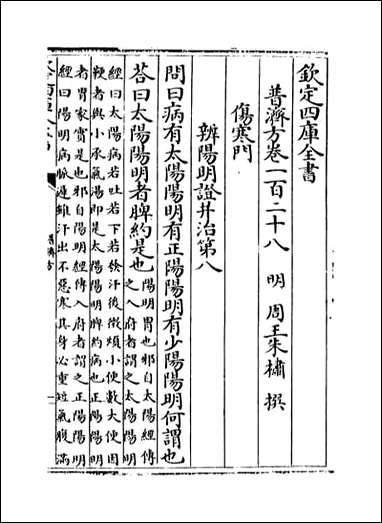 欽定四庫全書
普濟方卷一百二十八 明 周王朱橚 撰
傷寒門
辨陽明證并治第八
問曰病有太陽陽明有正陽陽明有少陽陽明何謂也
答曰太陽陽明者脾約是也陽明胃也邪自太陽經傳
之入府者謂之太陽陽明
經曰太陽病若吐若下若發汗後微煩小便數大便因
鞕者與小承氣湯即是太陽陽明脾約病也正陽陽明
者胃家實是也邪自陽明經傳入府者謂之正陽陽明
經曰陽明病脈遲雖汗出不惡寒其身必重短氣腹滿
普濟方